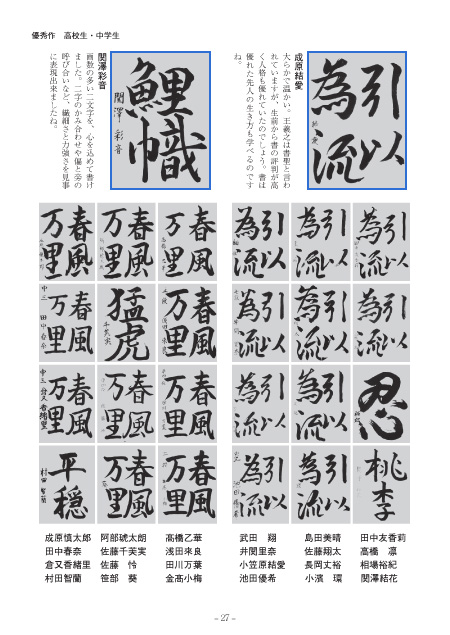 優秀作　高校生・中学生
引以
為流
成原結愛
大らかで温かい。王羲之は書聖と言わ
れていますが、生前から書の評判が高
く人格も優れていたのでしょう。書は
優れた先人の生き方も学べるのです
ね。
鯉幟
関澤彩音
関澤彩音
画数の多い二文字を、心を込めて書け
ました。二字のかみ合わせや偏と旁の
呼び合いなど、繊細さと力強さを見事
に表現出来ましたね。
引以
為流
引以
為流
引以
為流
春風
万里
春風
万里
春風
万里
引以
為流
引以
為流
引以
為流
春風
万里
猛虎
春風
万里
忍
引以
為流
引以
為流
春風
万里
春風
万里
春風
万里
桃李
引以
為流
引以
為流
春風
万里
春風
万里
平穏
成原慎太郎　阿部琥太朗　髙橋乙華　武田　翔　島田美晴　田中友香莉
田中春奈　佐藤千芙実　浅田来良　井関里奈　佐藤翔太　高橋　凛
倉又香緒里　佐藤　怜　田川万葉　小笠原結愛　長岡丈裕　相場裕紀
村田智蘭　笹部　葵　金高小梅　池田優希　小濱　環　関澤結花
– 27 –